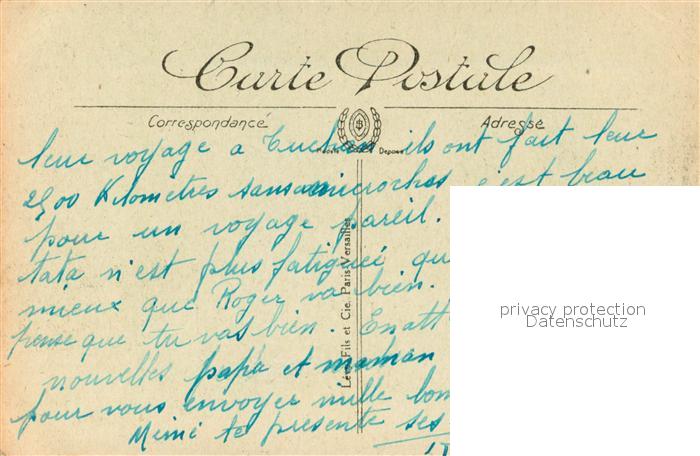 Carte Postale
Correspondance
Adresse
Modèle Déposé
leur voyage a ils ont fait leur
2500 Kilometres sans c'est beau
pour un voyage pareil.
tata n'est plus fatiguée qu
mieux que Roger va bien.
pense que tu vas bien. En att
nouvelles papa et maman
pour vous envoyer mille bon
Mimi te presente ses
Lévy Fils et Cie, Paris-Versailles
privacy protection
Datenschutz